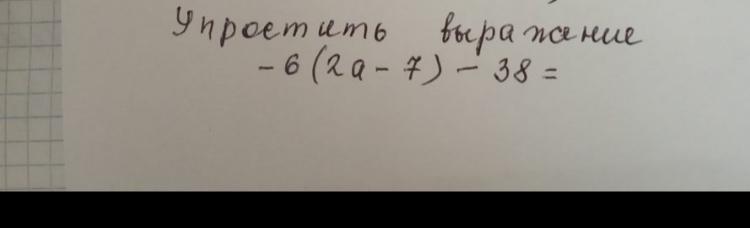 Упростить выражение
-6(2а-7)-38=